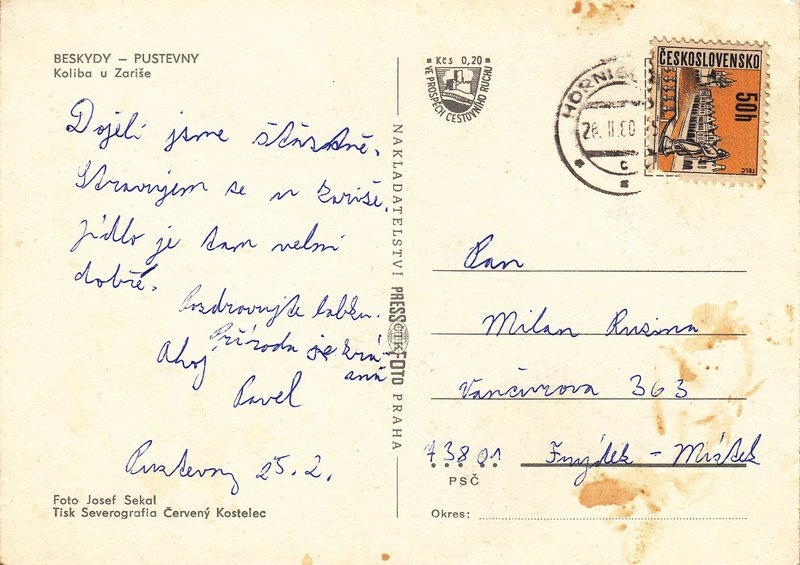 BESKYDY – PUSTEVNY
Koliba u Zariše
Dojeli jsme šťastně.
Stravujem se u Zariše.
Jídlo je tam velmi
dobré.
Pozdravujte babku.
Příroda je krá-
sná
Ahoj
Pavel
Pustevny 25. 2.
Foto Josef Sekal
Tisk Severografia Červený Kostelec
NAKLADATELSTVÍ PRESSFOTO PRAHA
ČTK
Kčs 0,20
VE PROSPĚCH CESTOVNÍHO RUCHU
26. II. 80
C
ČESKOSLOVENSKO
50h
TELČ
Pan
Milan Ruzina
Vančurova 363
73801 Frýdek – Místek
PSČ
Okres: